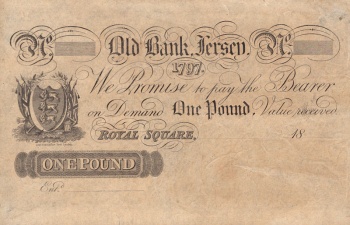 No. Old Bank, Jersey, No.
1797.
We Promise to pay the Bearer
on Demand One Pound, Value received
ROYAL SQUARE, 18
ONE POUND
Entd.